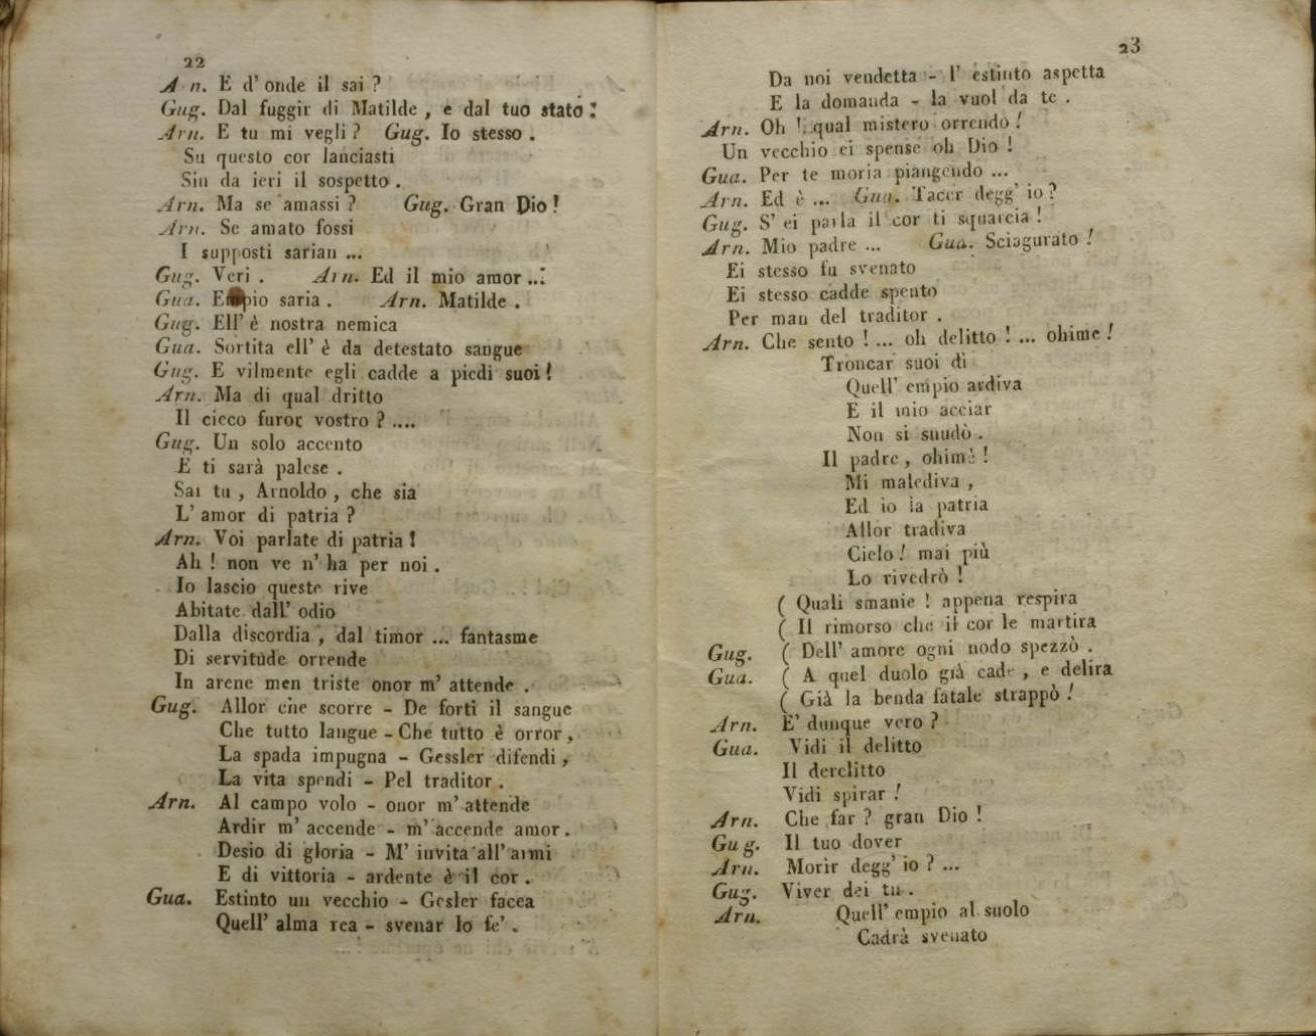 22
Arn. E d' onde il sai ?
Gug. Dal fuggir di Matilde , e dal tuo stato :
Arn. E tu mi vegli ? Gug. Io stesso .
Su questo cor lanciasti
Sin da ieri il sospetto .
Arn. Ma se amassi ? Gug. Gran Dio !
Arn. Se amato fossi
I supposti sarian ...
Gug. Veri . Arn. Ed il mio amor ...
Gua. Empio saria . Arn. Matilde .
Gug. Ell' è nostra nemica
Gua. Sortita ell' è da detestato sangue
Gug. E vilmente egli cadde a piedi suoi !
Arn. Ma di qual dritto
Il cieco furor vostro ? ....
Gug. Un solo accento
E ti sarà palese .
Sai tu , Arnoldo , che sia
L' amor di patria ?
Arn. Voi parlate di patria !
Ah ! non ve n' ha per noi .
Io lascio queste rive
Abitate dall' odio
Dalla discordia , dal timor ... fantasme
Di servitude orrende
In arene men triste onor m' attende .
Gug. Allor che scorre - De forti il sangue
Che tutto langue - Che tutto è orror ,
La spada impugna - Gessler difendi ,
La vita spendi - Pel traditor .
Arn. Al campo volo - onor m' attende
Ardir m' accende - m' accende amor .
Desio di gloria - M' invita all' armi
E di vittoria - ardente è il cor .
Gua. Estinto un vecchio - Gesler facea
Quell' alma rea - svenar lo fe' .
23
Da noi vendetta - l' estinto aspetta
E la domanda - la vuol da te .
Arn. Oh ! qual mistero orrendo !
Un vecchio ei spense oh Dio !
Gua. Per te moria piangendo ...
Arn. Ed è ... Gua. Tacer degg' io ?
Gug. S' ei parla il cor ti squarcia !
Arn. Mio padre ... Gua. Sciagurato !
Ei stesso fu svenato
Ei stesso cadde spento
Per man del traditor .
Arn. Che sento ! ... oh delitto ! ... ohime !
Troncar suoi dì
Quell' empio ardiva
E il mio acciar
Non si snudò .
Il padre , ohimè !
Mi malediva ,
Ed io la patria
Allor tradiva
Cielo ! mai più
Lo rivedrò !
( Quali smanie ! appena respira
( Il rimorso che il cor le martira
Gug. ( Dell' amore ogni nodo spezzò .
Gua. ( A quel duolo già cade , e delira
( Già la benda fatale strappò !
Arn. E' dunque vero ?
Gua. Vidi il delitto
Il derelitto
Vidi spirar !
Arn. Che far ? gran Dio !
Gug. Il tuo dover
Arn. Morir degg' io ? ...
Gug. Viver dei tu .
Arn. Quell' empio al suolo
Cadrà svenato